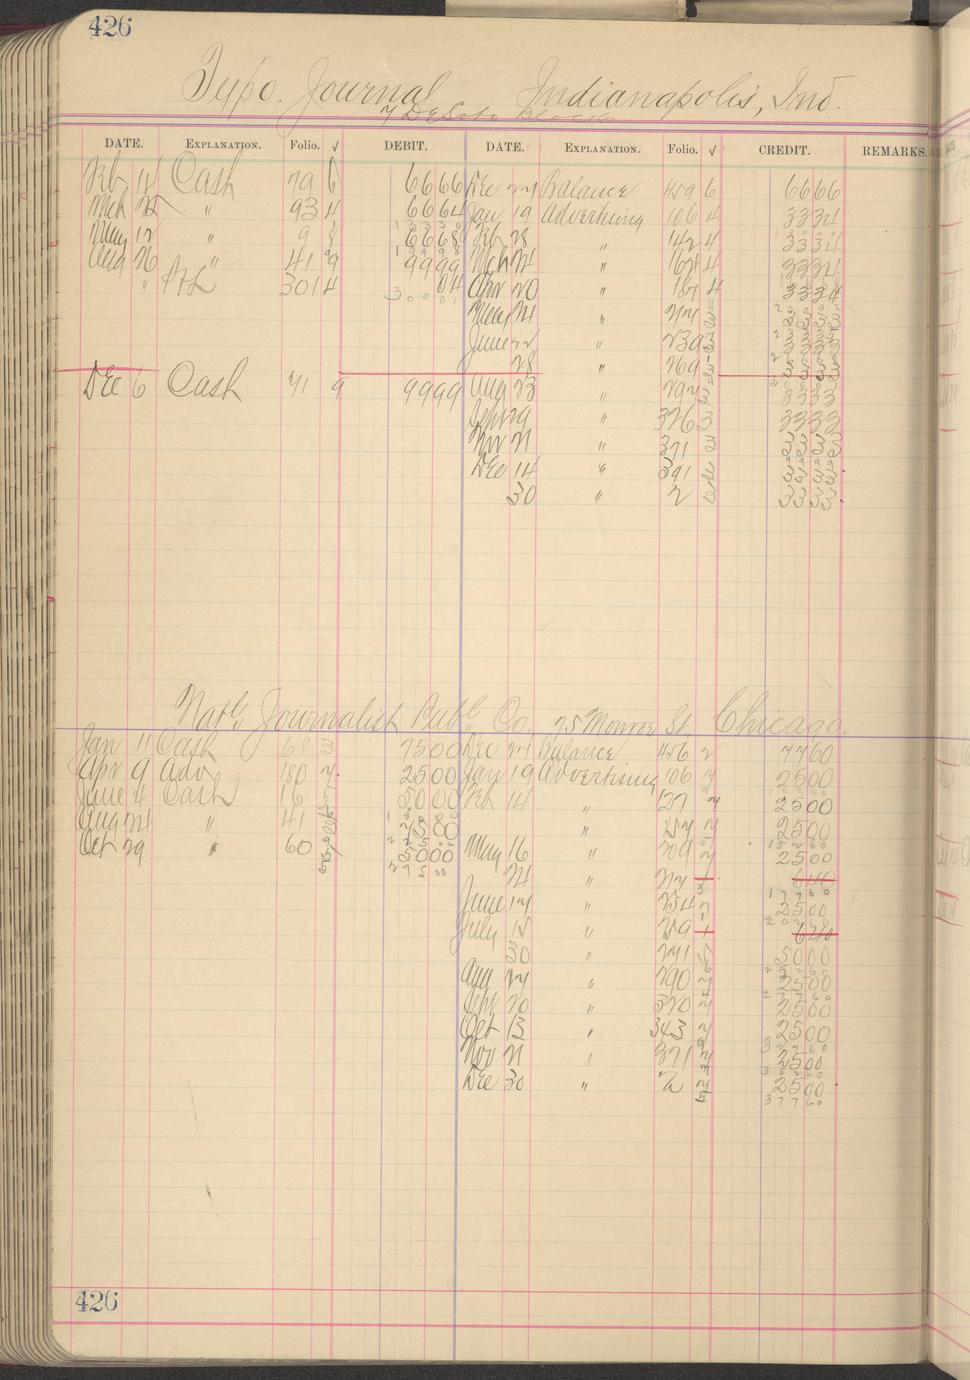 426
Typo. Journal Indianapolis, Ind.
7 DeSoto Block
DATE. EXPLANATION. Folio. √ DEBIT. DATE. EXPLANATION. Folio. √ CREDIT. REMARKS.
Feb 12 Cash 79 6 6666 Dec 27 Balance 459 6 6666
Mch 22 " 93 4 6664 Jan 19 Advertising 106 4 3334
May 12 " 9 8 6668 Feb 28 " 142 4 3334
Aug 26 " 41 9 9999 Mch 24 " 164 4 3334
" 301 4 04 Apr 20 " 187 4 3334
May 24 "
June 22 " 239 3 3333
28 " 269
Dec 6 Cash 71 9 9999 Aug 23 " 297 3333
Sept 29 " 326 3 3333
Nov 21 " 371 3333
Dec 14 " 391 3333
30 " 2 3333
Natl. Journalist Publ. Co. 75 Monroe St. Chicago.
Jan 11 Cash 68 7500 Dec 27 Balance 456 2 7760
Apr 9 Adv. 180 2500 Jan 19 Advertising 106 2500
June 4 Cash 16 5000 Feb 14 " 127 2500
Aug 24 " 41 " 2500
Oct 29 " 60 5000 May 16 " 209 2500
24 " 640
June 17 " 254 2500
July 15 " 259 1 640
30 " 271 5000
Aug 27 " 290 2500
Sept 20 " 320 2500
Oct 13 " 343 2500
Nov 21 " 371 2500
Dec 30 " 2 2500
37760
426